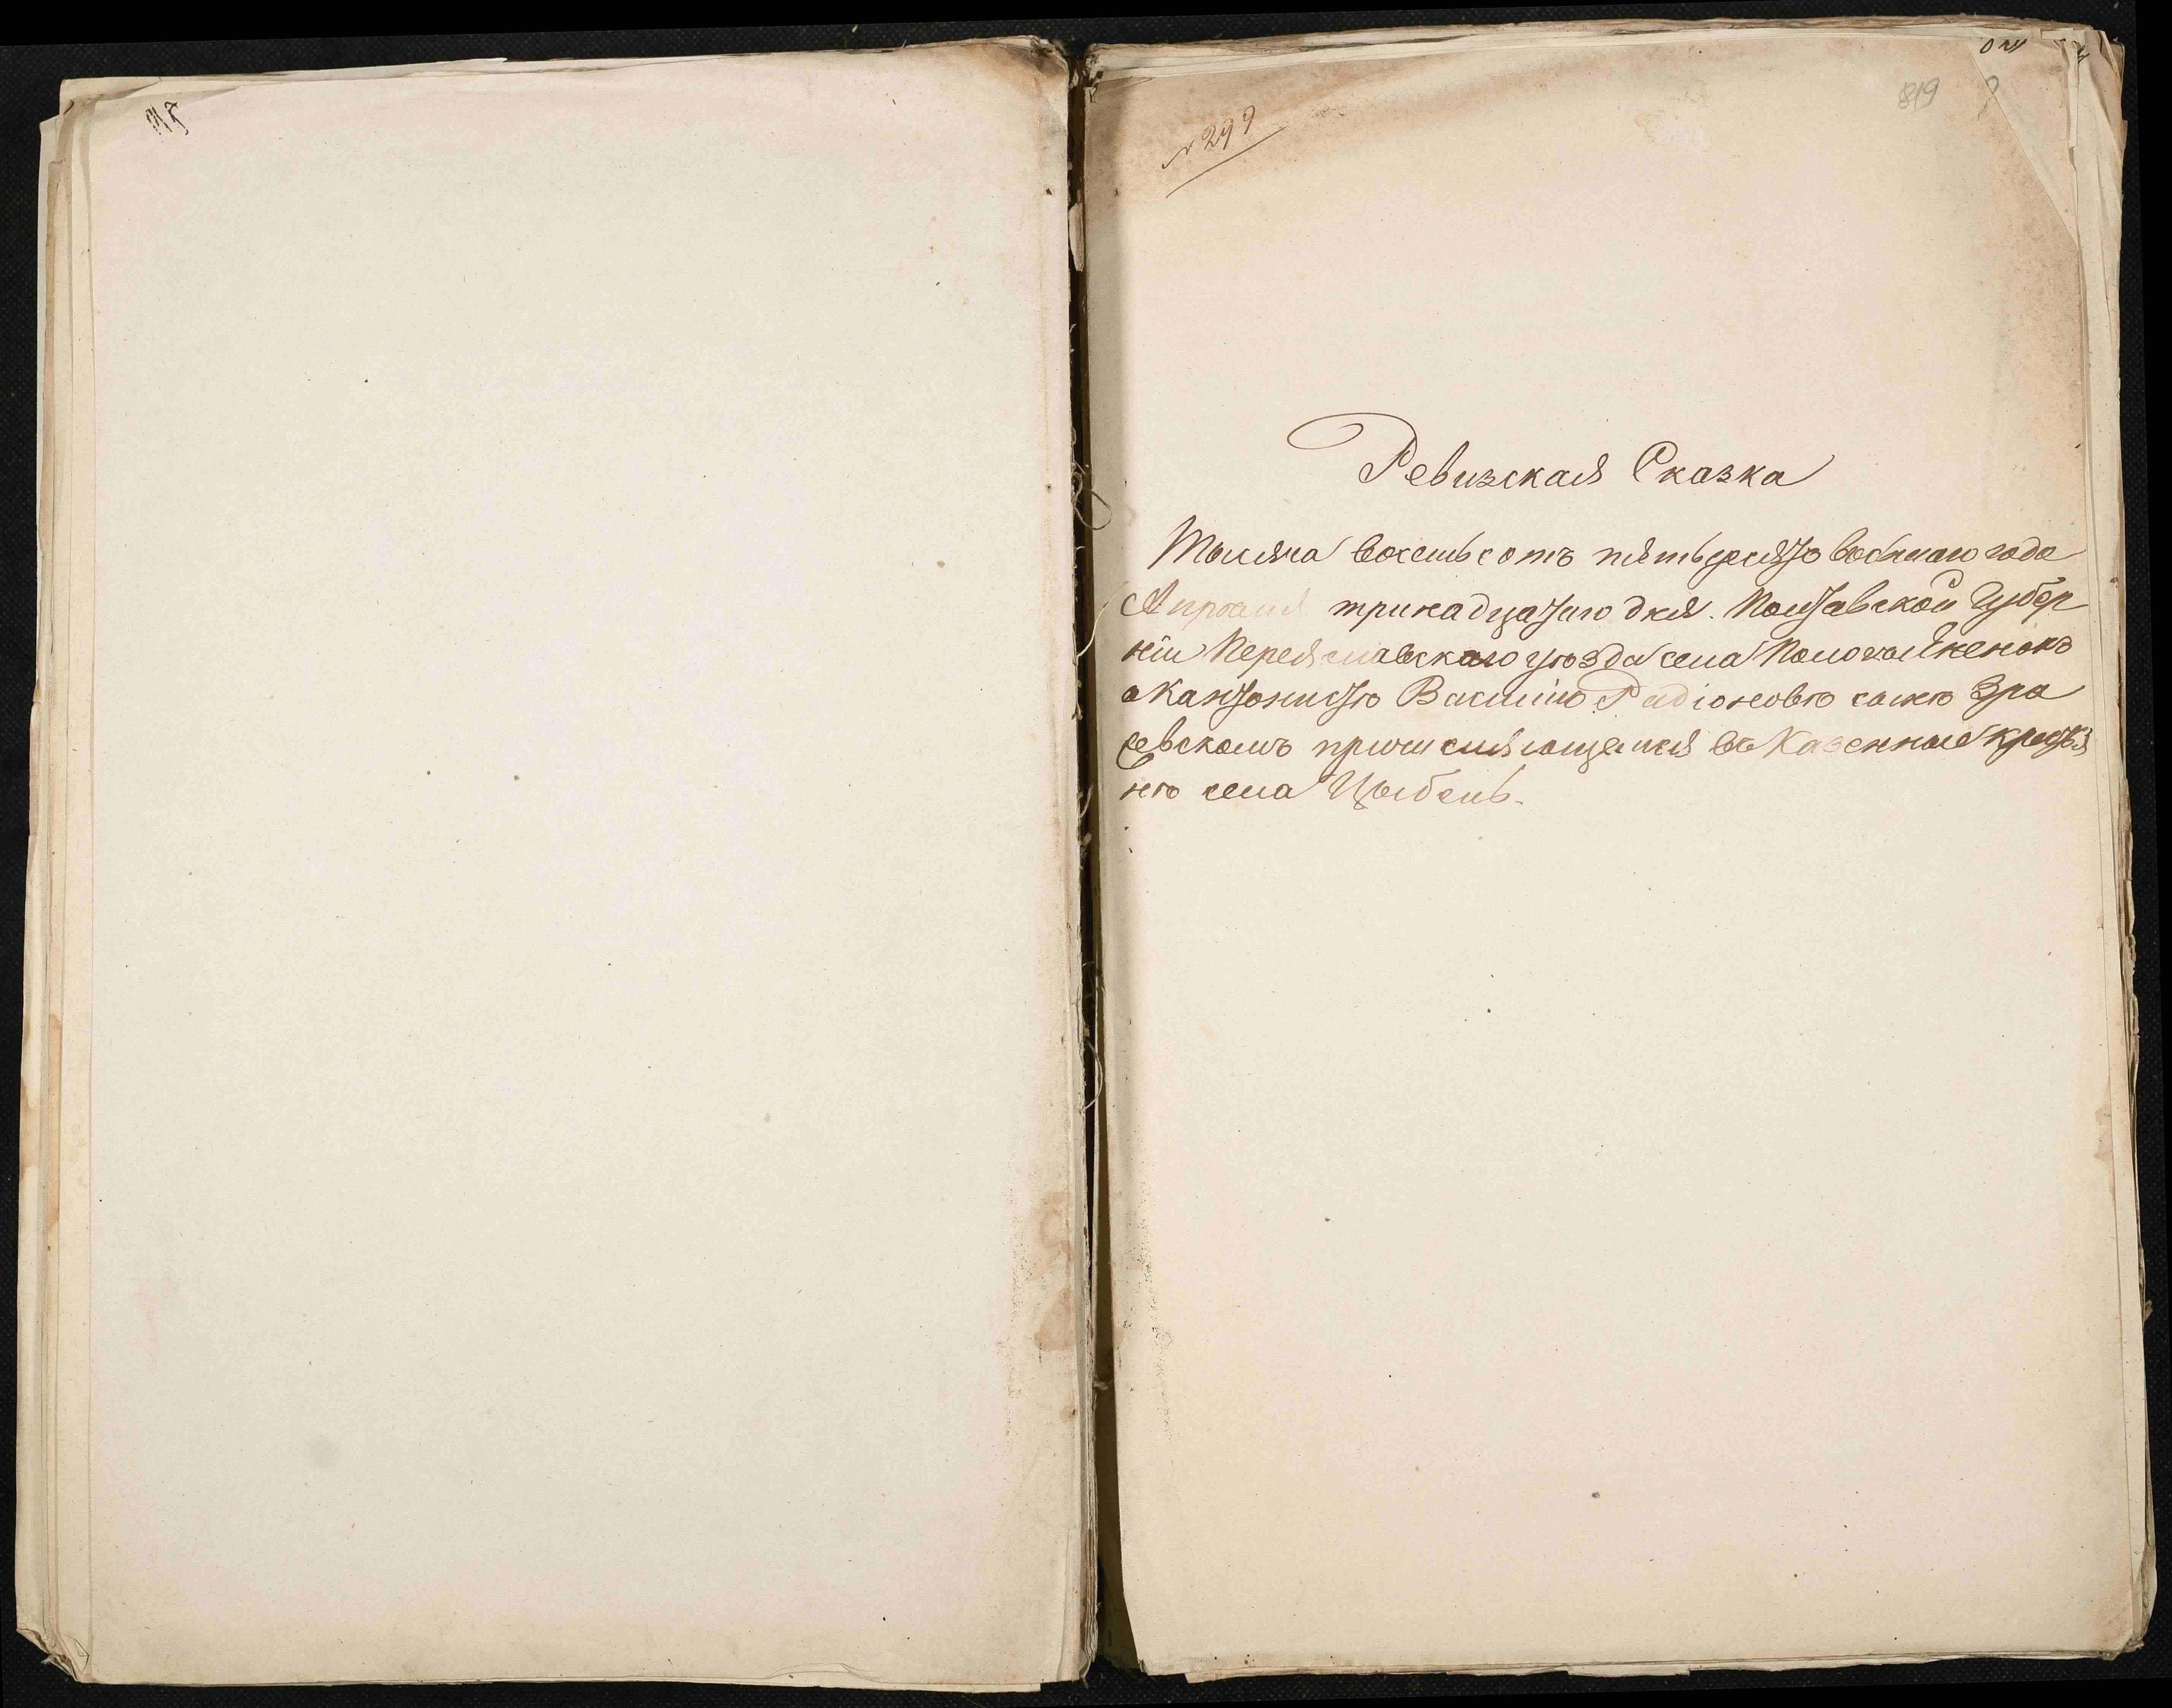 № 299
819
Ревизская Сказка
Тысяча восемьсотъ пятьдесято восьмаго года
Апреля тринадцатого дня. Полтавской Губер
ніи Переяславскаго уезда села
о Кантонисте Василию Радіонове сыне Гра
евскомъ причисляющемся въ Казенные крестья
не села Цыбель.